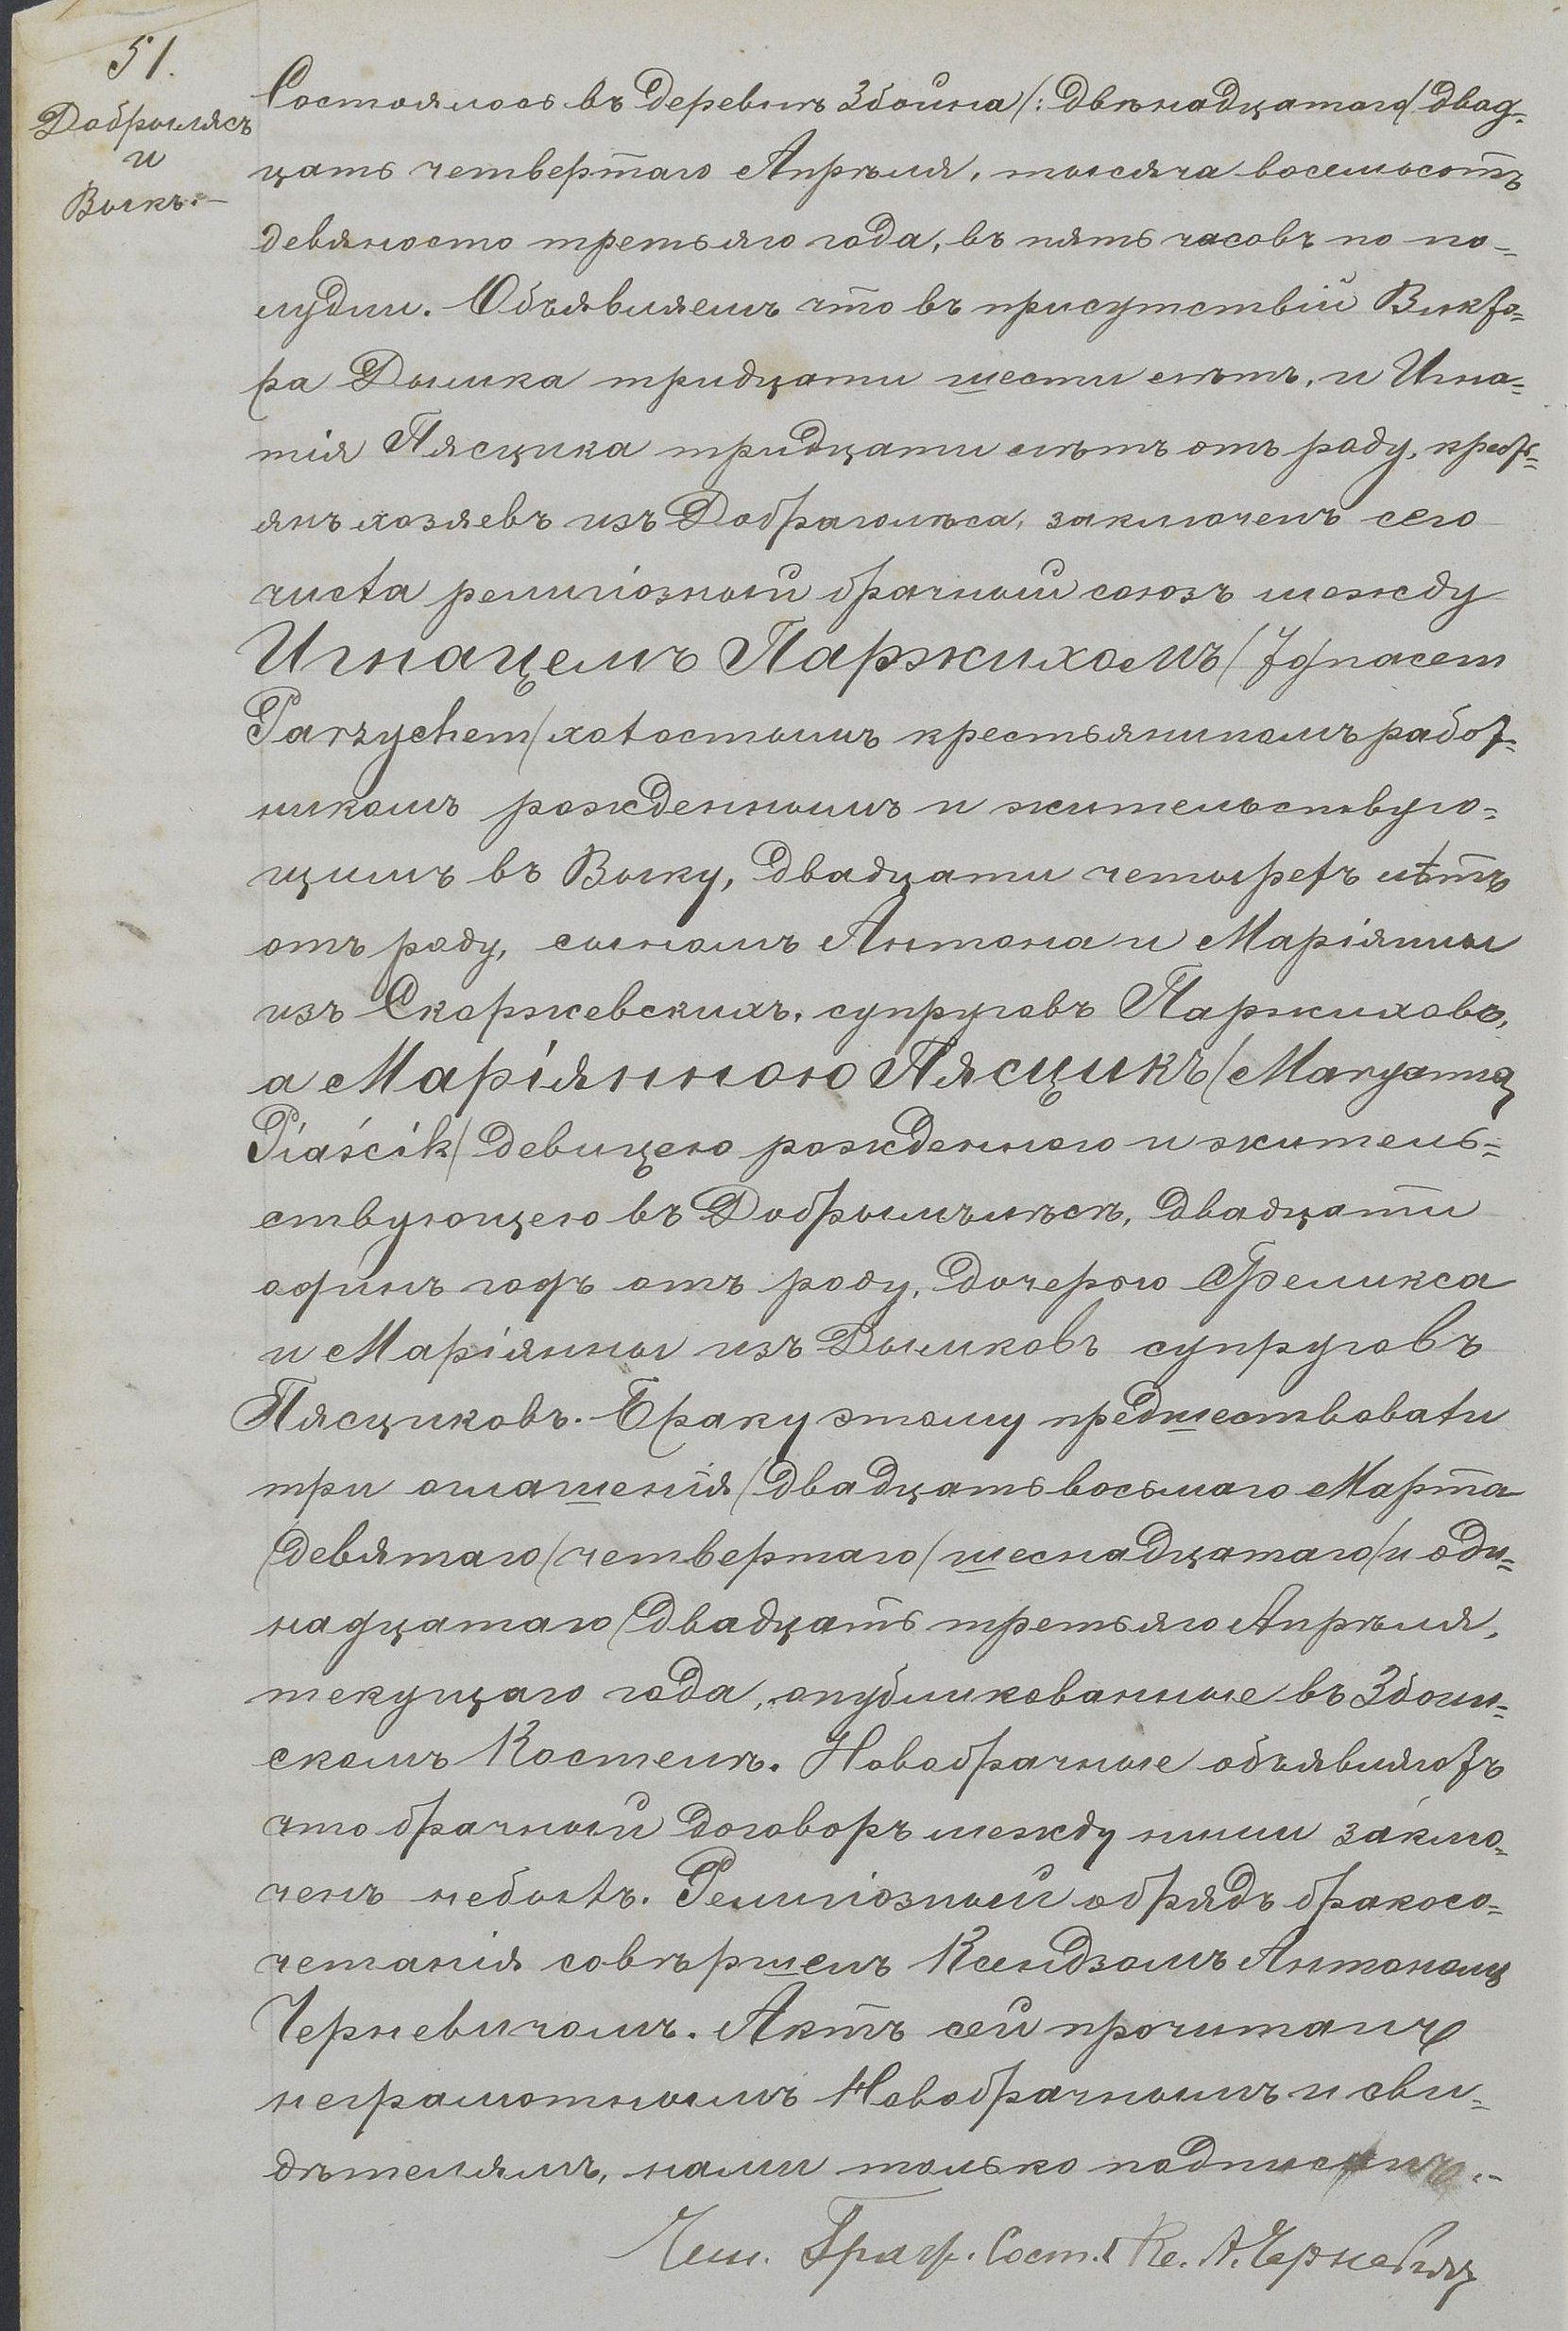 51.
Добрылясъ
и
Выкъ.—
Состоялось въ деревнѣ Збойна /: двѣнадцатого/ двад-
цать четвертаго Апрѣля, тысяча восемьсотъ
девяносто третьяго года, въ пять часовъ по по-
лудни. Объявляемъ что въ присутствіи Викто-
ра Дылика тридцати шести лѣтъ, и Игна-
тія Пясцика тридцати лѣтъ отъ роду, кресть-
янъ хозяевъ изъ Доброголѣса, заключенъ сего
числа религіозный брачный союзъ между
Игнацемъ Паржихомъ /Ignacem
Parzychem/ холостымъ крестьяниномъ работ-
никомъ рожденнымъ и жительствую-
щимъ въ Выку, двадцати четырехъ лѣтъ
отъ роду, сыномъ Антона и Маріянны
изъ Скоржевскихъ, супруговъ Паржиховъ,
а Маріянною Пясцикъ /Maryanną
Piaścik/ девицею рожденною и житель-
ствующею въ Добрымълѣсѣ, двадцати
одинъ годъ отъ роду, дочерью Феликса
и Маріянны изъ Дыликовъ супруговъ
Пясциковъ. Браку этому предшествовали
три оглашенія /двадцать восьмаго Марта
/девятаго/ четвертаго /шеснадцатаго/ и оди-
надцатаго /двадцать третьяго Апрѣля,
текущаго года, опубликованные въ Збоин-
скомъ Костелѣ. Новобрачные объявляютъ
что брачный договоръ между ними заклю-
ченъ небылъ. Религіозный обрядъ бракосо-
четанія совѣршенъ Ксендзомъ Антономъ
Черневичомъ. Актъ сей прочитанъ
неграмотнымъ Новобрачнымъ и сви-
дѣтелямъ, нами только подписанъ.—
Чин. Граж. Сост. Кс. А. Черневичъ